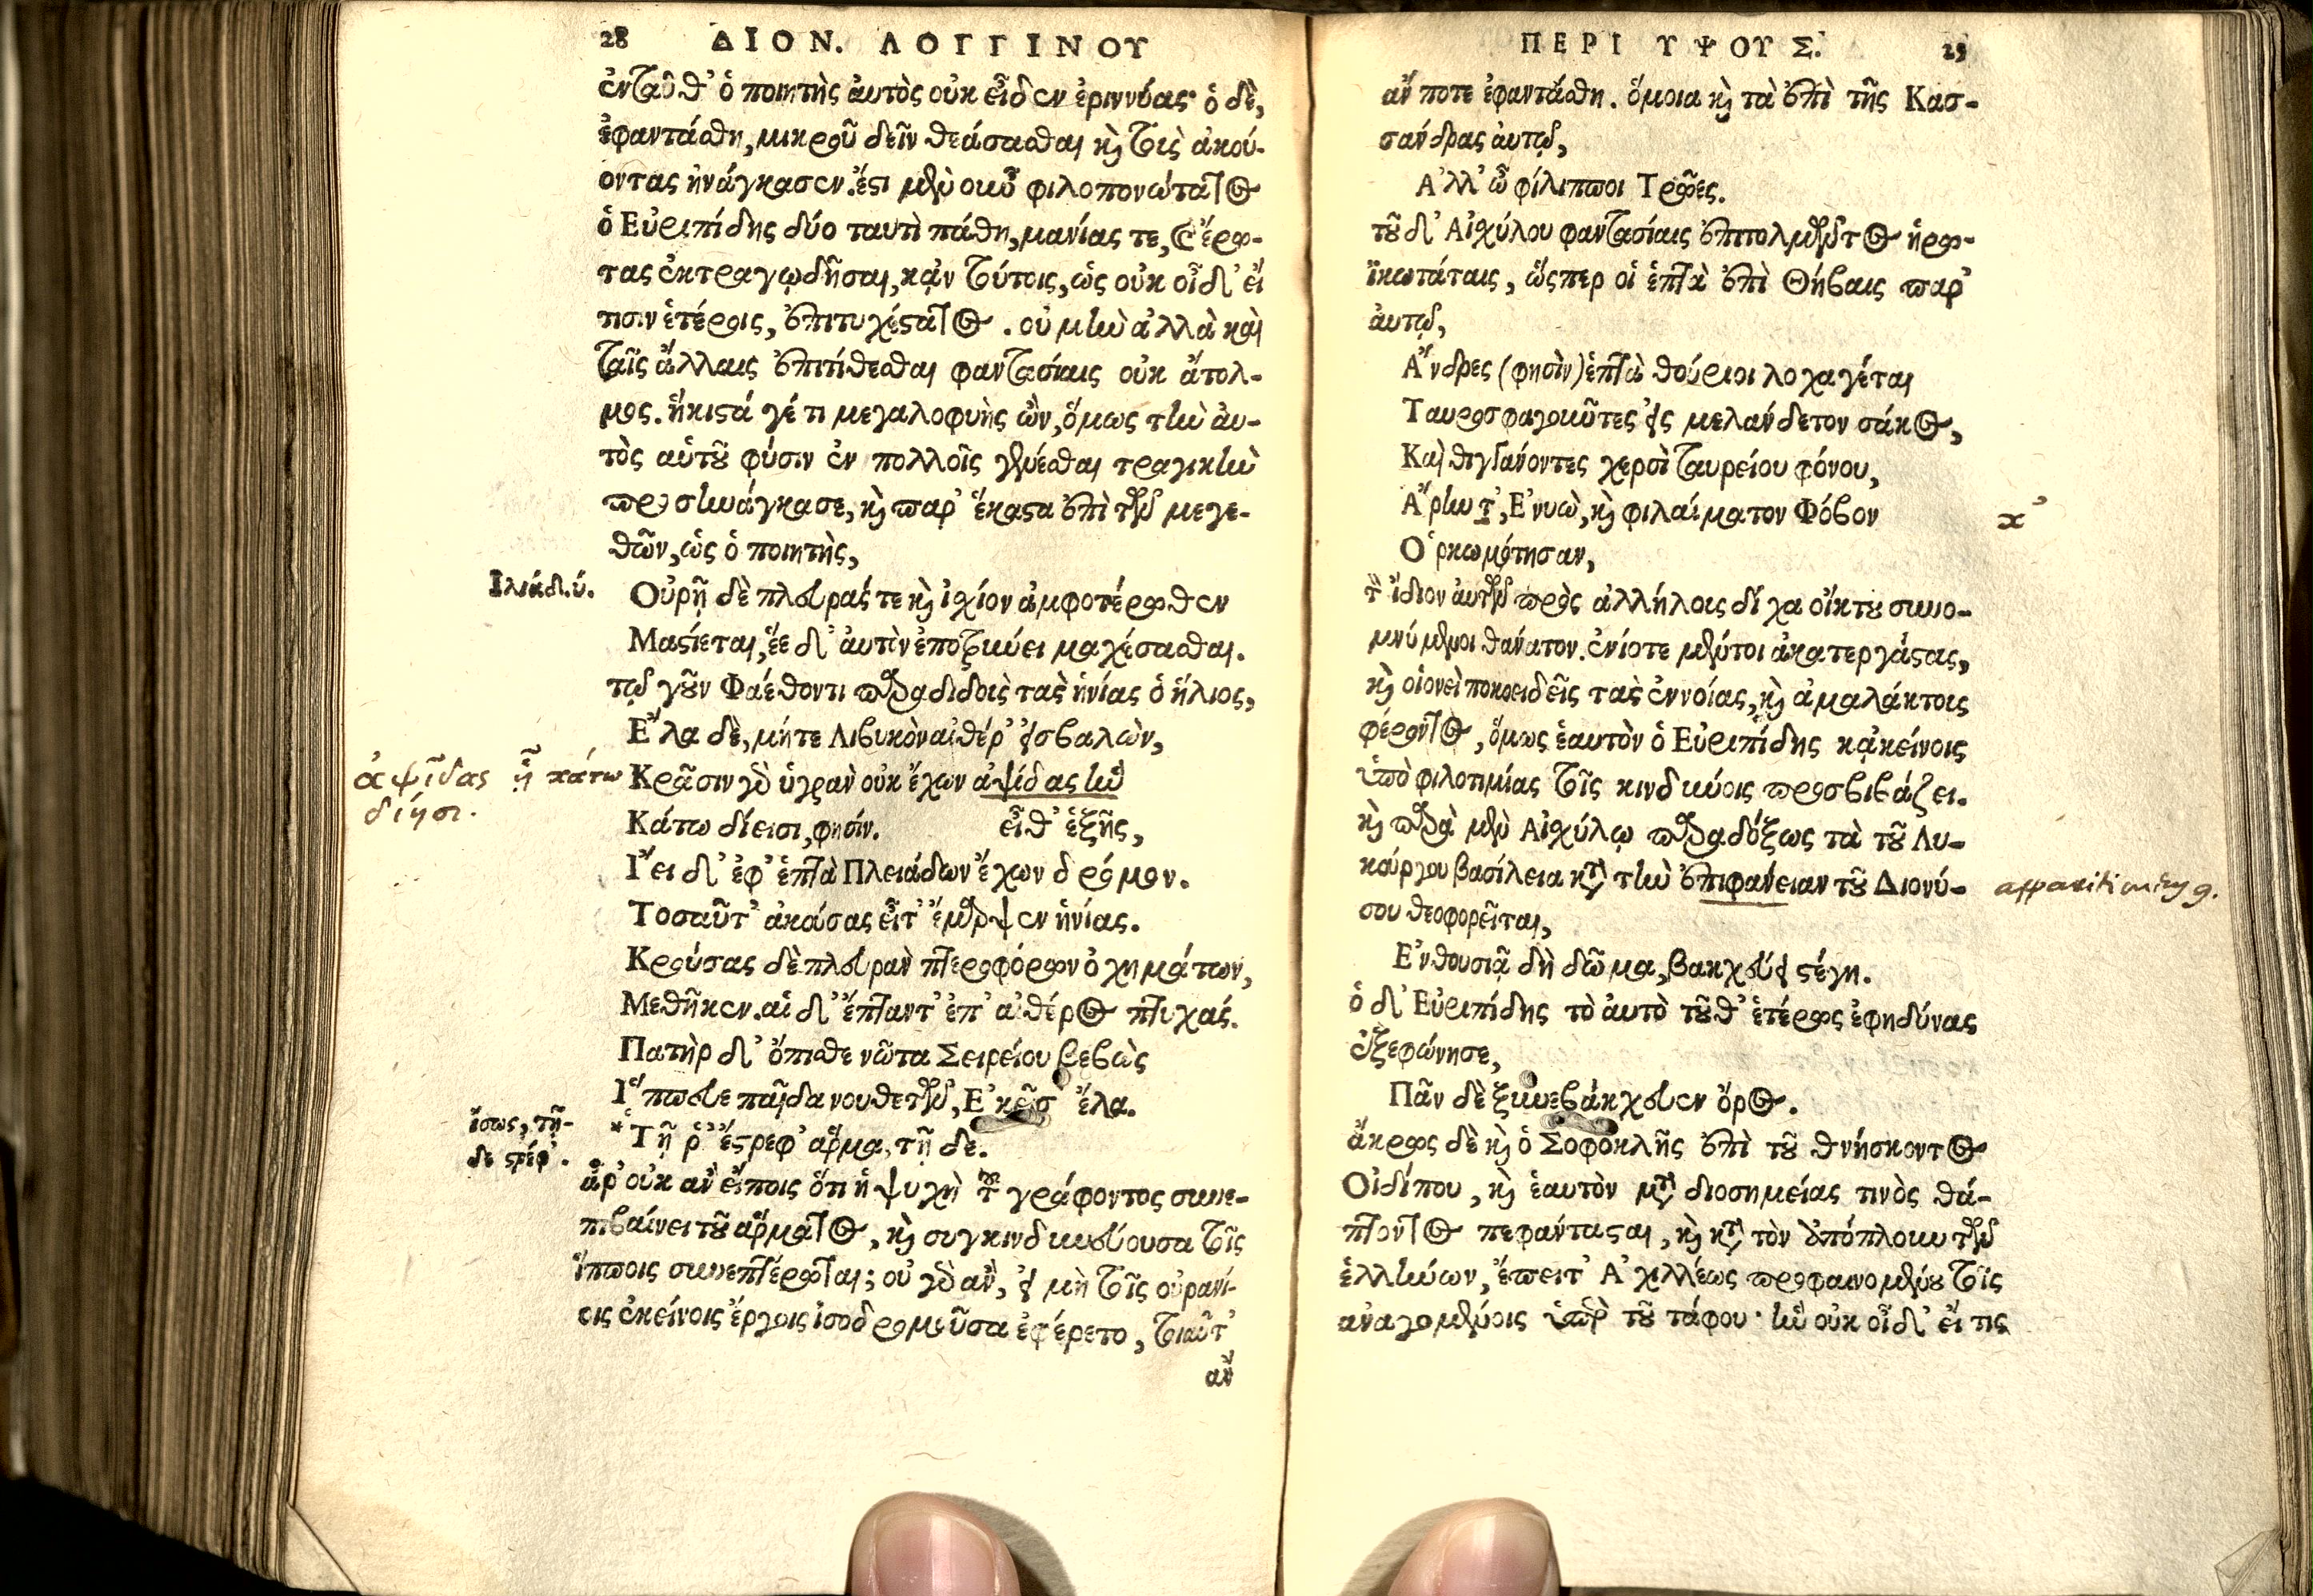 28 ΔΙΟΝ. ΛΟΓΓΙΝΟΥ
ἐνταῦθ' ὁ ποιητὴς αὐτὸς οὐκ εἶδεν ἐριννύας· ὁ δὲ,
ἐφαντάσθη, μικροῦ δεῖν θεάσασθαι καὶ τοὺς ἀκού-
οντας ἠνάγκασεν. ἔστι μὲν οὖν φιλοπονώτατος
ὁ Εὐριπίδης δύο ταυτὶ πάθη, μανίας τε, καὶ ἔρω-
τας ἐκτραγῳδῆσαι, κἀν τούτοις, ὡς οὐκ οἶδ' εἴ
τισιν ἑτέροις, ἐπιτυχέστατος. οὐ μὴν ἀλλὰ καὶ
ταῖς ἄλλαις ἐπιτίθεσθαι φαντασίαις οὐκ ἄτολ-
μος. ἥκιστά γέ τι μεγαλοφυὴς ὢν, ὅμως τὴν αὐ-
τὸς αὑτοῦ φύσιν ἐν πολλοῖς γενέσθαι τραγικὴν
προσηνάγκασε, καὶ παρ' ἕκαστα ἐπὶ τῶν μεγε-
θῶν, ὡς ὁ ποιητὴς,
Ἰλιάδ. ύ. Οὐρῇ δὲ πλευράς τε καὶ ἰσχίον ἀμφοτέρωθεν
Μαστίεται, ἕε δ' αὐτὸν ἐποτρύνει μαχέσασθαι.
τῷ γοῦν Φαέθοντι παραδιδοὺς τὰς ἡνίας ὁ ἥλιος,
Ἔλα δὲ, μήτε Λιβυκὸν αἰθέρ' εἰσβαλὼν,
ἁψῖδας ἢ κάτω Κρᾶσιν γὰρ ὑγρὰν οὐκ ἔχων ἁψίδας ἣν
διήσι. Κάτω δίεισι, φησίν. εἶθ' ἑξῆς,
Ἵει δ' ἐφ' ἑπτὰ Πλειάδων ἔχων δρόμον.
Τοσαῦτ' ἀκούσας εἶτ' ἔμαρψεν ἡνίας.
Κρούσας δὲ πλευρὰν πτεροφόρων ὀχημάτων,
Μεθῆκεν. αἱ δ' ἔπταντ' ἐπ' αἰθέρος πτυχάς.
Πατὴρ δ' ὄπισθε νῶτα Σειρείου βεβὼς
Ἵππευε παῖδα νουθετῶν, Ἐκεῖσ' ἔλα.
ἴσως, τῇ- * Τῇ ῥ' ἔστρεφ' ἅρμα, τῇ δε.
δε στρέφ'.
ἆρ' οὐκ ἂν εἴποις ὅτι ἡ ψυχὴ τοῦ γράφοντος συνε-
πιβαίνει τοῦ ἅρματος, καὶ συγκινδυνεύουσα τοῖς
ἵπποις συνεπτέρωται; οὐ γὰρ ἂν, εἰ μὴ τοῖς οὐρανί-
οις ἐκείνοις ἔργοις ἰσοδρομοῦσα ἐφέρετο, τοιαῦτ'
ἄν
ΠΕΡΙ ΥΨΟΥΣ. 29
ἄν ποτε ἐφαντάσθη. ὅμοια καὶ τὰ ἐπὶ τῆς Κασ-
σάνδρας αὐτῷ,
Ἀλλ' ὦ φίλιπποι Τρῶες.
τοῦ δ' Αἰσχύλου φαντασίαις ἐπιτολμῶντος ἡρω-
ϊκωτάταις, ὥσπερ οἱ ἑπτὰ ἐπὶ Θήβαις παρ'
αὐτῷ,
Ἄνδρες (φησὶν) ἑπτὰ θούριοι λοχαγέται
Ταυροσφαγοῦντες εἰς μελάνδετον σάκος,
Καὶ θιγγάνοντες χερσὶ ταυρείου φόνου,
Ἄρην τ', Ἐνυὼ, καὶ φιλαίματον Φόβον κ'
Ὁρκωμότησαν,
τὸν ἴδιον αὐτῶν πρὸς ἀλλήλους δίχα οἴκτου συνο-
μνύμενοι θάνατον. ἐνίοτε μέντοι ἀκατεργάστας,
καὶ οἱονεὶ ποκοειδεῖς τὰς ἐννοίας, καὶ ἀμαλάκτους
φέροντος, ὅμως ἑαυτὸν ὁ Εὐριπίδης κἀκείνοις
ὑπὸ φιλοτιμίας τοῖς κινδύνοις προσβιβάζει.
καὶ παρὰ μὲν Αἰσχύλῳ παραδόξως τὰ τοῦ Λυ-
κούργου βασίλεια κατὰ τὴν ἐπιφάνειαν τοῦ Διονύ-
σου θεοφορεῖται,
Ἐνθουσιᾷ δὴ δῶμα, βακχεύει στέγη.
ὁ δ' Εὐριπίδης τὸ αὐτὸ τοῦθ' ἑτέρως ἐφηδύνας
ἐξεφώνησε,
Πᾶν δὲ ξυνεβάκχευεν ὄρος.
ἄκρως δὲ καὶ ὁ Σοφοκλῆς ἐπὶ τοῦ θνήσκοντος
Οἰδίπου, καὶ ἑαυτὸν μετὰ διοσημείας τινὸς θά-
πτοντος πεφάντασται, καὶ κατὰ τὸν ἀπόπλουν τῶν
ἑλλήνων, ἔπειτ' Ἀχιλλέως προφαινομένου τοῖς
ἀναγομένοις ὑπὲρ τοῦ τάφου· ἣν οὐκ οἶδ' εἴ τις